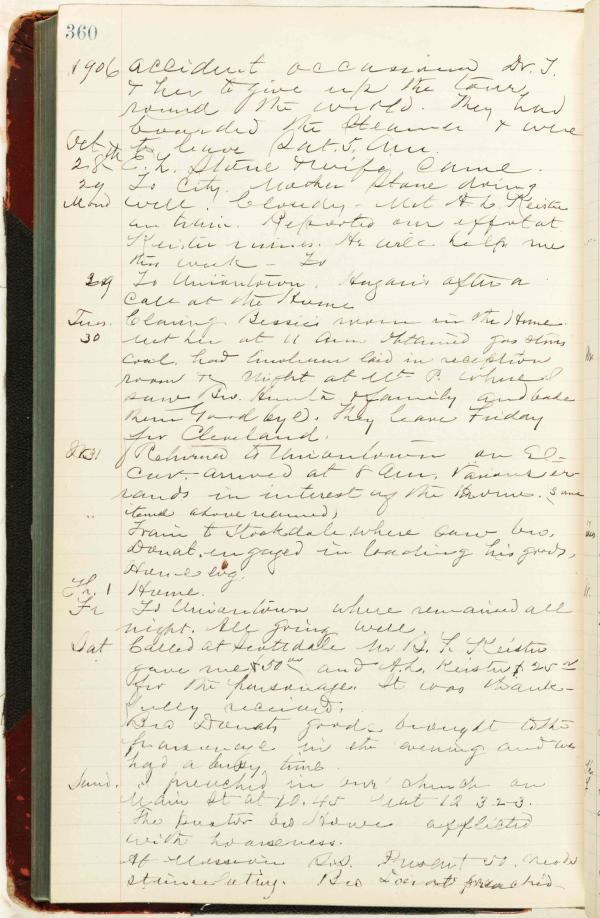 360
1906 accident occasioned Dr. T.
& her to give up the tour
round the world. They had
boarded the steamer & were
Oct to leave Sat. 5. Am.
28th E. L. Stone & wife came.
29 To City. Mother Stone doing
Mond well. Cloudy - Met A. L. Keister
on train. Reported our effort at
Keister mines. He will help me
this week -
29 To Uniontown. after a
call at the Home
Tues. Bessie's room in the Home.
30 met her at 11 Am obtained gas stove
coal, had linoleum laid in reception
room &c. Night at Mt. P. where I
saw Bro. & family and bade
them Good bye. They leave Friday
for Cleveland.
31 Returned to Uniontown on El-
car. arrived at 8 Am. Various er-
rands in interest of the Home. (Some
items above named)
Train to Stockdale where saw bro.
Donat, engaged in loading his goods,
Home evg.
Th. 1 Home.
Fr To Uniontown where remained all
night. All going well.
Sat Called at Scottdale Mr B. F. Keister
gave me $50 00 and A. L. Keister $25 00
for the parsonage. It was thank-
fully received.
Bro Donats goods brought to the
parsonage in the evening and we
had a busy time.
Sund. I preached in our church on
Main St at 10.45 Matt 12
The pastor bro Howe afflicted
with hoarseness.
At S.S. Present 51. needs
stimulating. Bro Donat preached